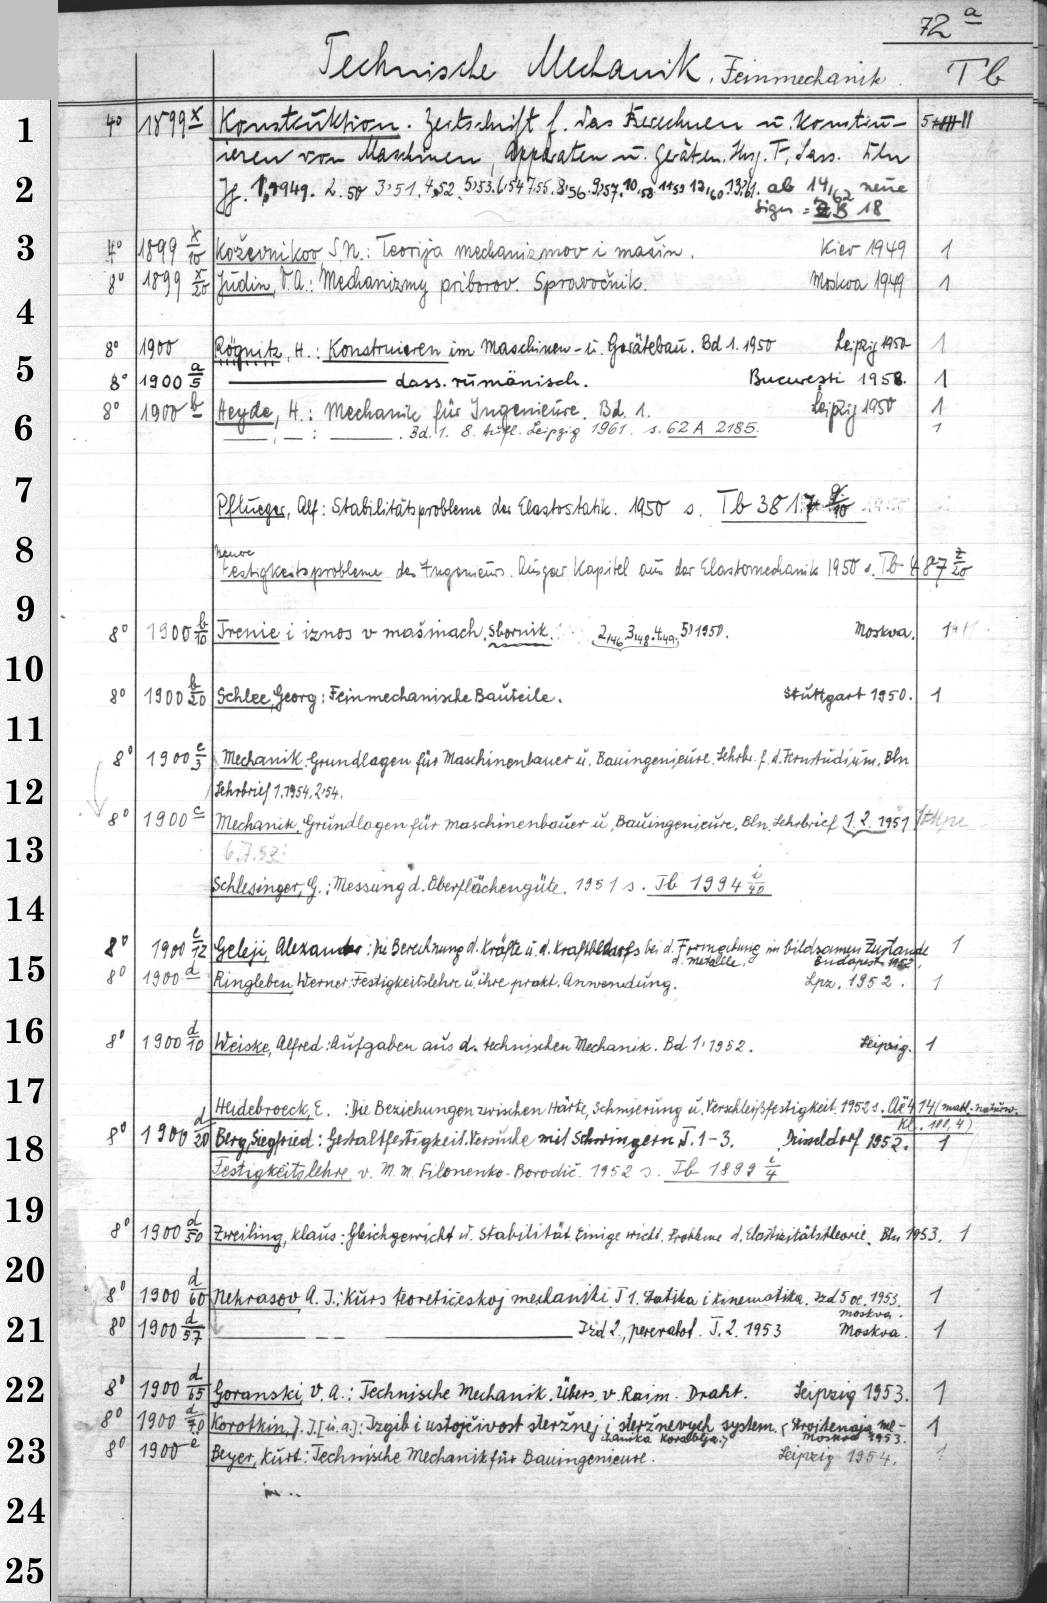 72 a
Technische Mechanik. Feinmechanik. Tb
1 4° 1899 x Konstruktion. Zeitschrift f. das Berechnen u. Konstru-
ieren von Maschinen, Apparaten u. Geräten. Hrsg. F. Sass. Bln
2 Jg. 1,1949. 2.50 3,51. 4,52. 5,53. 6,54 7,55. 8,56. 9,57. 10,58 11,59 12,60 13,61. ab 14,62 neue
Sign = ZB 18
3 4° 1899 x/10 Koževnikov, S.N.: Teorija mechanizmov i mašin. Kiev 1949 1
8° 1899 x/20 Judin, V.A.: Mechanizmy priborov. Spravočnik. Moskva 1949 1
4
8° 1900 Rögnitz, H.: Konstruieren im Maschinen- u. Gerätebau. Bd 1. 1950 Leipzig 1950 1
5 8° 1900 a/5 dass. rumänisch. Bucureşti 1958. 1
8° 1900 b Heyde, H.: Mechanik für Ingenieure. Bd. 1. Leipzig 1950 1
6 Bd. 1. 8. Aufl. Leipzig 1961. s. 62 A 2185. 1
7 Pflueger, Alf: Stabilitätsprobleme der Elastostatik. 1950 s. Tb 38
8 neuere
Festigkeitsprobleme des Ingenieurs. Ausgew. Kapitel aus der Elastomechanik 1950 s. Tb 487 z/20
9 8° 1900 b/10 Trenie i iznos v mašinach. Sbornik. 2,46 3,48. 4,49. 5,1950. Moskva. 1
10 8° 1900 b/20 Schlee, Georg: Feinmechanische Bauteile. Stuttgart 1950. 1
11 8° 1900 c/3 Mechanik. Grundlagen für Maschinenbauer u. Bauingenieure. Lehrbr. f. d. Fernstudium. Bln
12 Lehrbrief 1.1954, 2,54.
8° 1900 c Mechanik. Grundlagen für Maschinenbauer u. Bauingenieure. Bln. Lehrbrief 1. 2. 1951
13 6.7.52
Schlesinger, G.: Messung d. Oberflächengüte. 1951 s. Tb 1994 i/40
14
8° 1900 c/12 Geleji, Alexander: Die Berechnung d. Kräfte u. d. Kraftbedarfs bei d. Formgebung im bildsamen Zustande 1
15 d. Metalle. Budapest 1952.
8° 1900 d Ringleben, Werner: Festigkeitslehre u. ihre prakt. Anwendung. Lpz. 1952. 1
16 8° 1900 d/10 Weiske, Alfred: Aufgaben aus d. technischen Mechanik. Bd 1. 1952. Leipzig. 1
17 Heidebroeck, E. : Die Beziehungen zwischen Härte, Schmierung u. Verschleißfestigkeit. 1952 s. Aë 414 (math.-naturw.
Kl. 101, 4)
18 8° 1900 d/20 Berg, Siegfried: Gestaltfestigkeit. Versuche mit Schwingern T. 1-3. Düsseldorf 1952. 1
Festigkeitslehre v. M. M. Filonenko-Borodič. 1952 s. Tb 1899 i/4
19 8° 1900 d/50 Zweiling, Klaus: Gleichgewicht u. Stabilität. Einige wicht. Probleme d. Elastizitätstheorie. Bln 1953. 1
20 8° 1900 d/60 Nekrasov A. I.: Kurs teoretičeskoj mechaniki. T 1. Statika i kinematika. Izd 5oe. 1953. 1
Moskva.
21 8° 1900 d/57 Izd 2., pererabot. T. 2. 1953 Moskva. 1
22 8° 1900 d/65 Goranski, V. A.: Technische Mechanik. Übers. v. Raim. Draht. Leipzig 1953. 1
8° 1900 d/70 Korotkin, J. I. [u. a.]: Izgib i ustojčivost steržnej i steržnevych system. (Stroitelnaja me- 1
chanika korablja.) Moskva 1953.
23 8° 1900 e Beyer, Kurt: Technische Mechanik für Bauingenieure. Leipzig 1954. 1
24
25